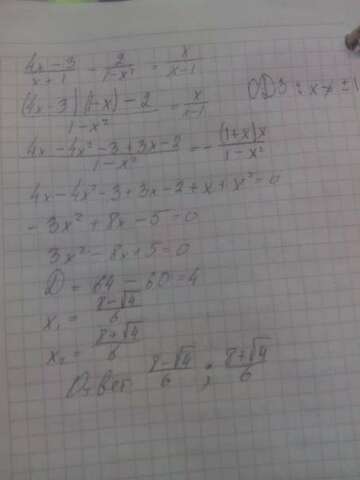 (4x-3)/(x+1) - 2/(1-x²) = x/(x-1)
((4x-3)(1-x)-2)/(1-x²) = x/(x-1) ОДЗ: x≠±1
(4x-4x²-3+3x-2)/(1-x²) = -((1+x)x)/(1-x²)
4x-4x²-3+3x-2+x+x²=0
-3x²+8x-5=0
3x²-8x+5=0
D=64-60=4
x₁=(8-√4)/6
x₂=(8+√4)/6
Ответ (8-√4)/6 ; (8+√4)/6